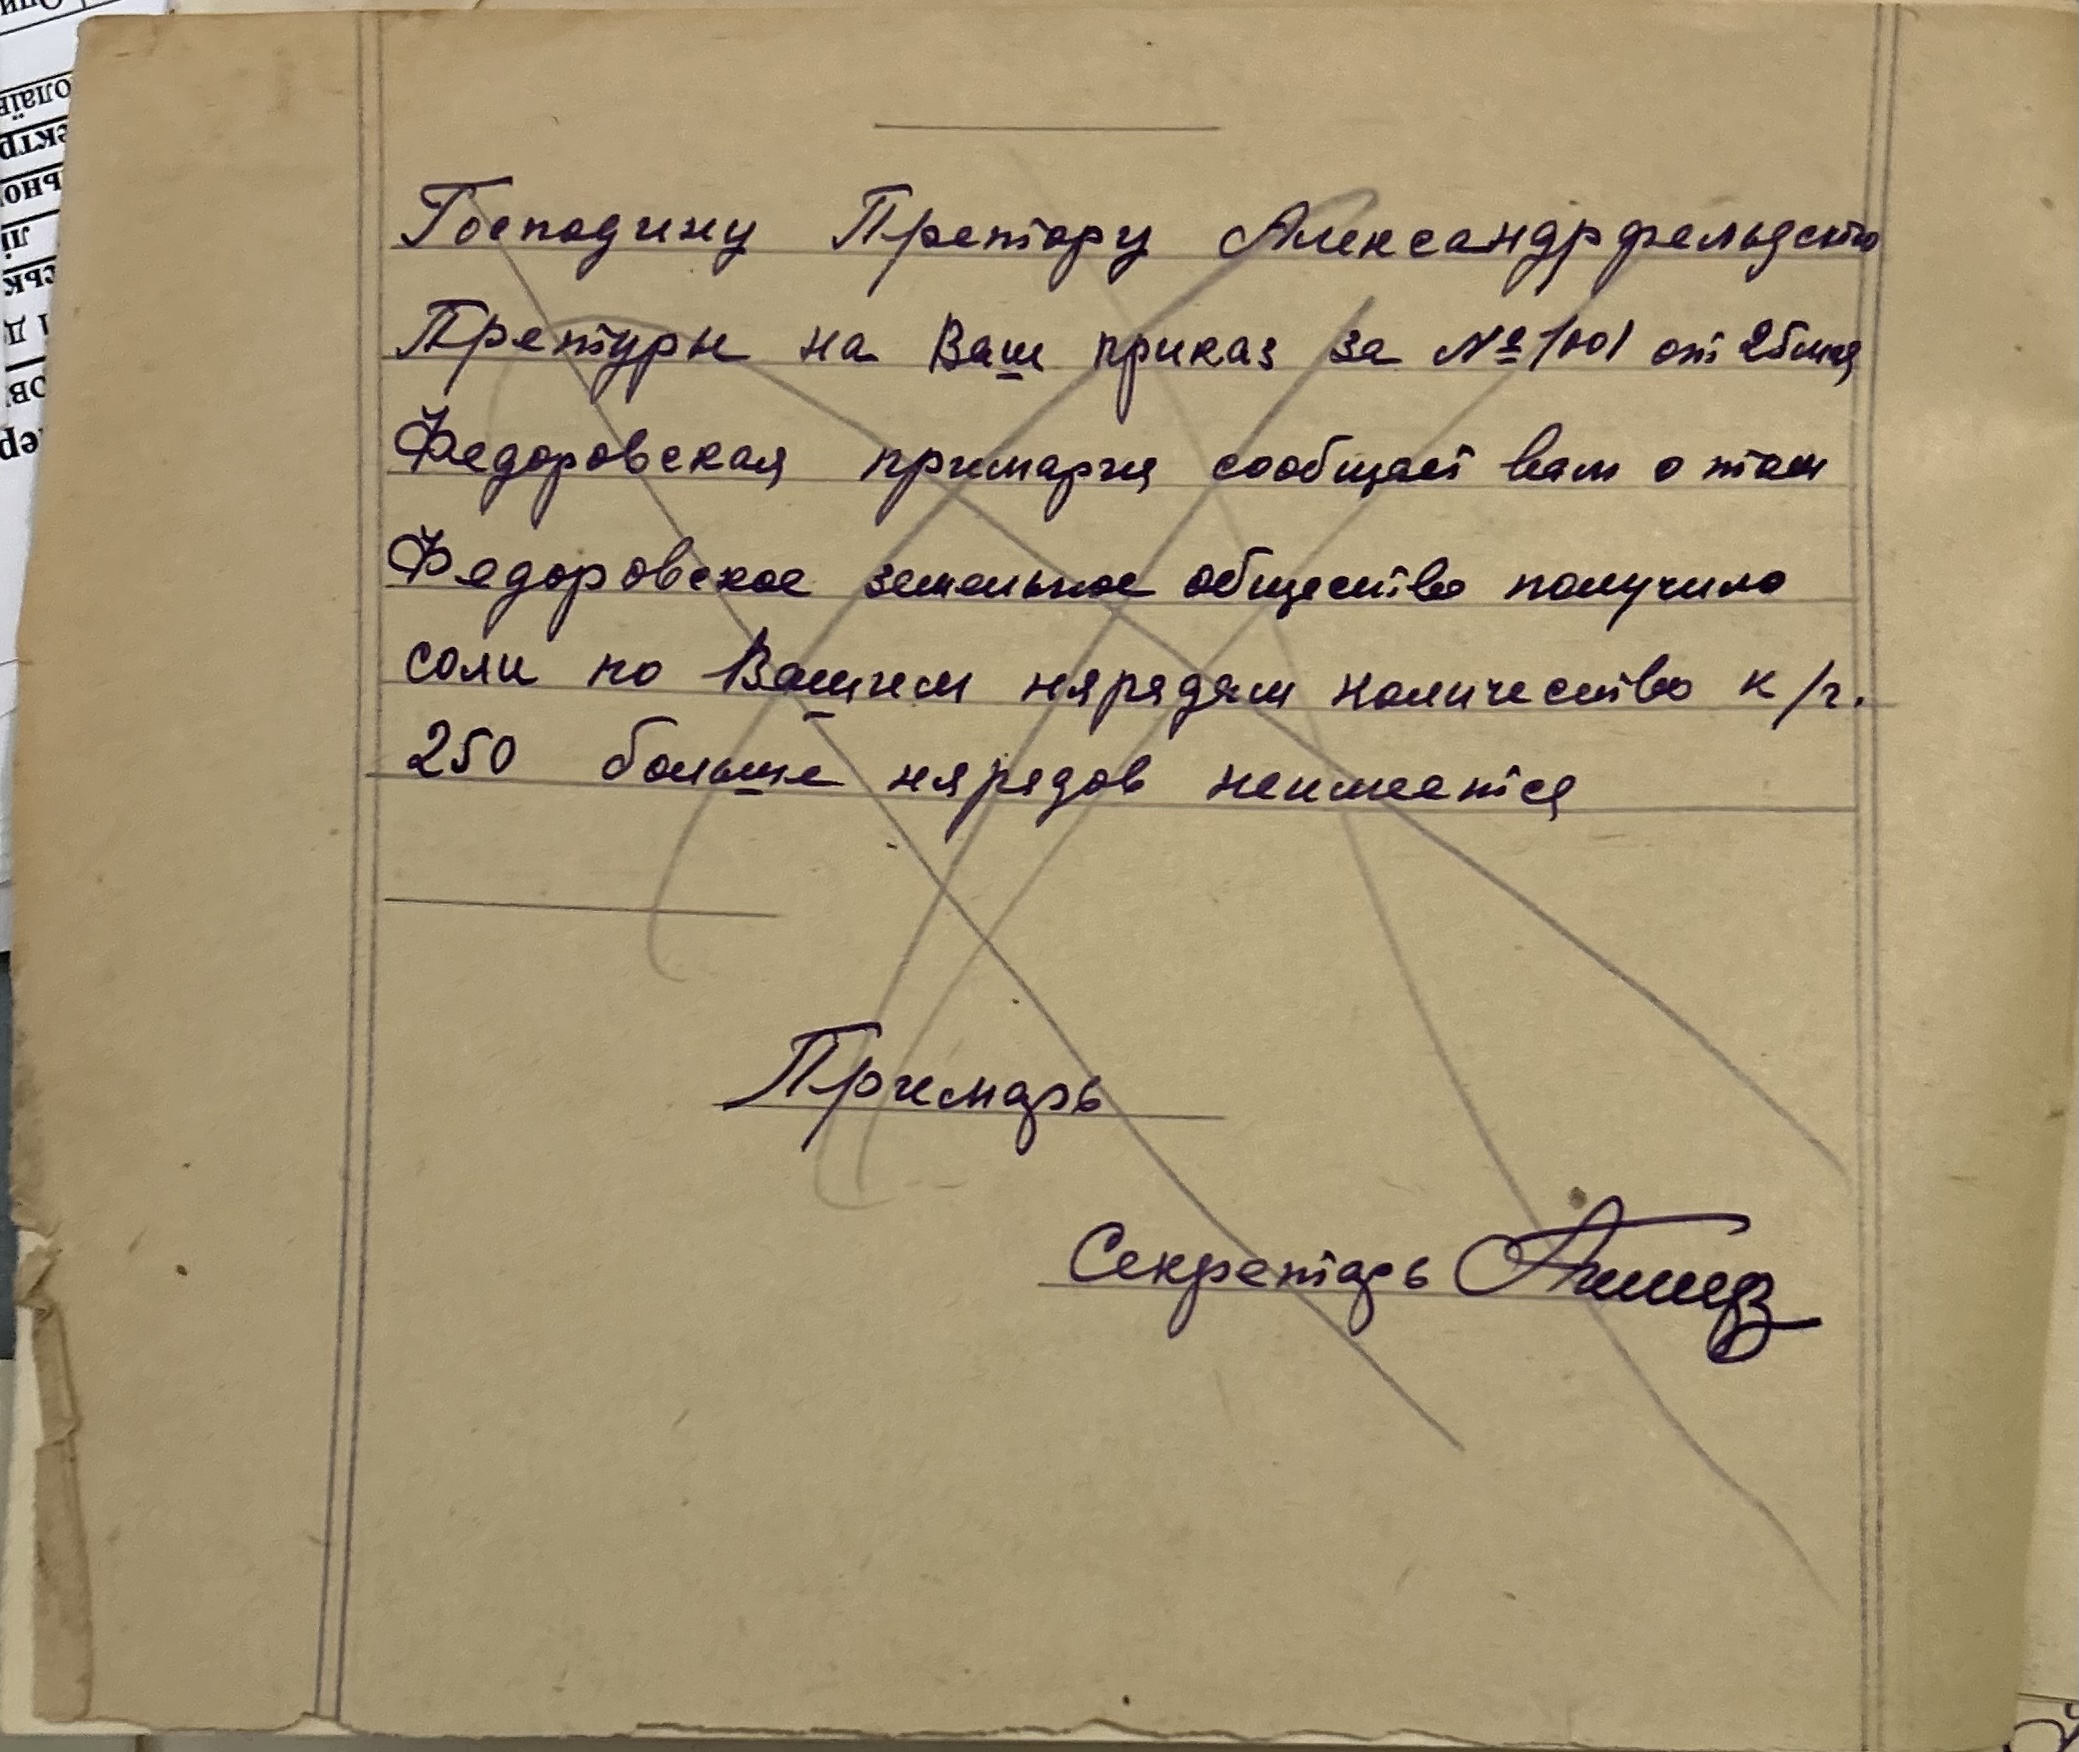 Господину Претору Александрфельдского
Претуры на Ваш приказ за № 1001 от 25 мая
Федоровская примария сообщает вам о том
Федоровское земельное общество получило
соли по Вашим нярядам количество к/г.
250 больше нярядов неимеется
Примарь
Секретарь